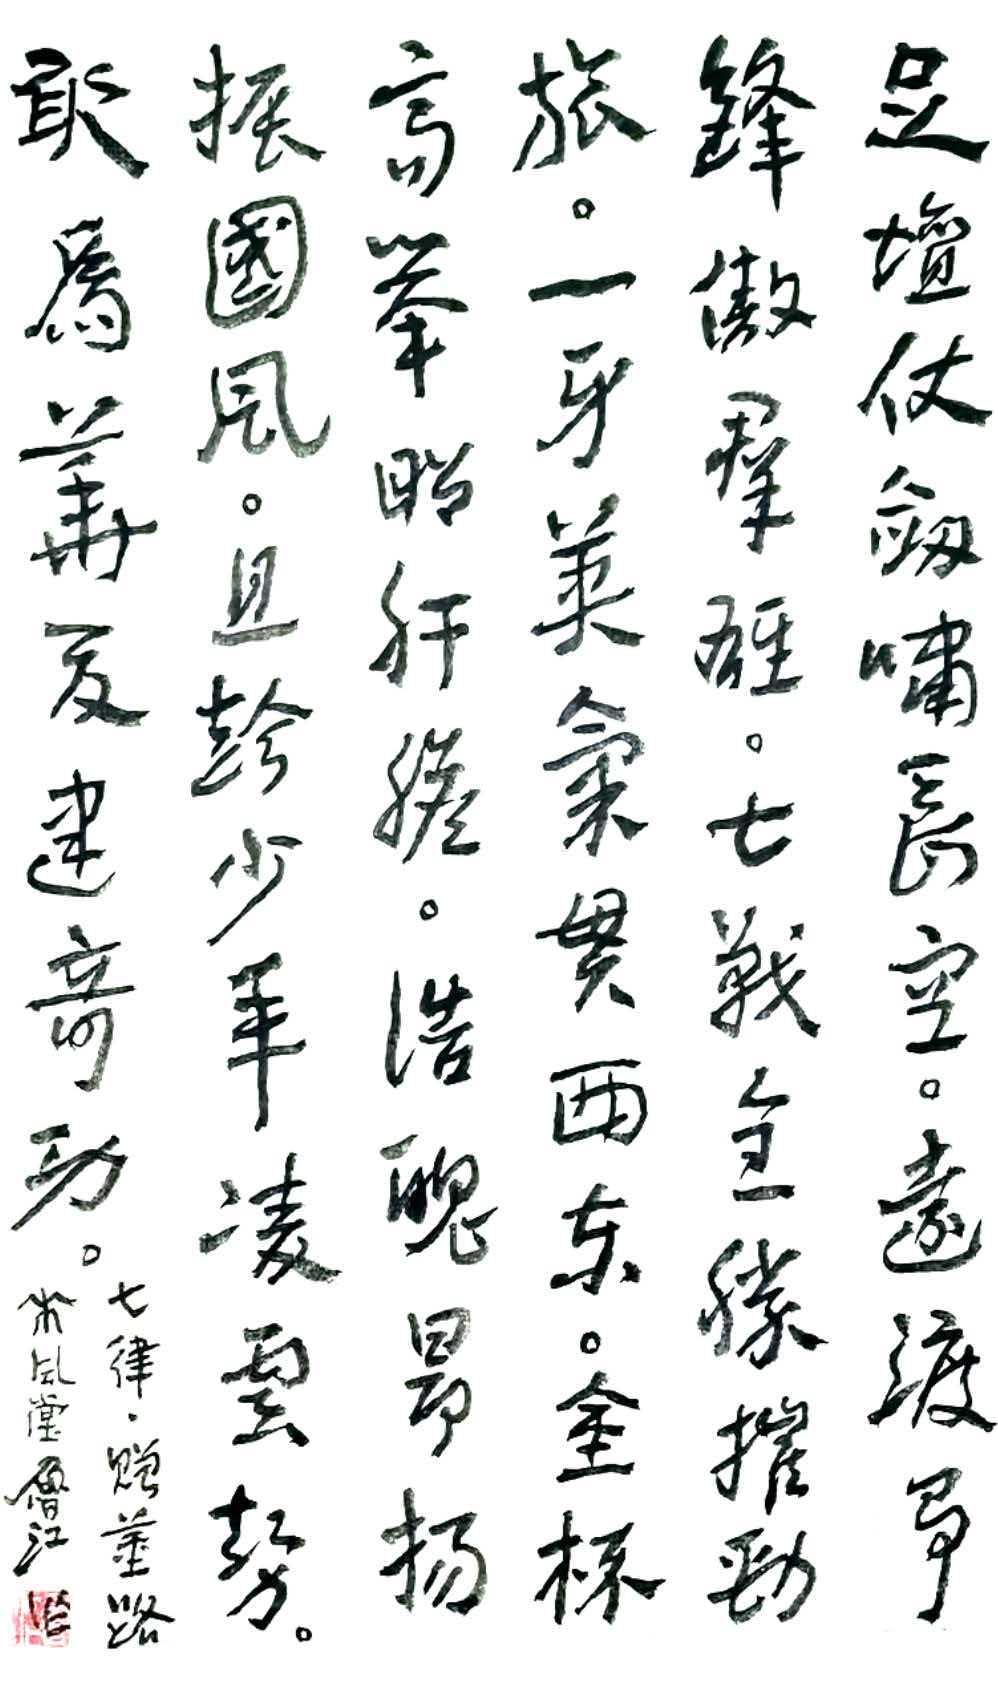 足壇仗劍嘯長空。遠渡爭
鋒傲羣雄。七戰全勝摧勁
旅。一牙英氣貫西東。金杯
高舉昭肝膽。浩魄昂揚
振國風。且趁少年凌雲勢。
敢為華夏建奇功。
七律·贈董路
風堂 江